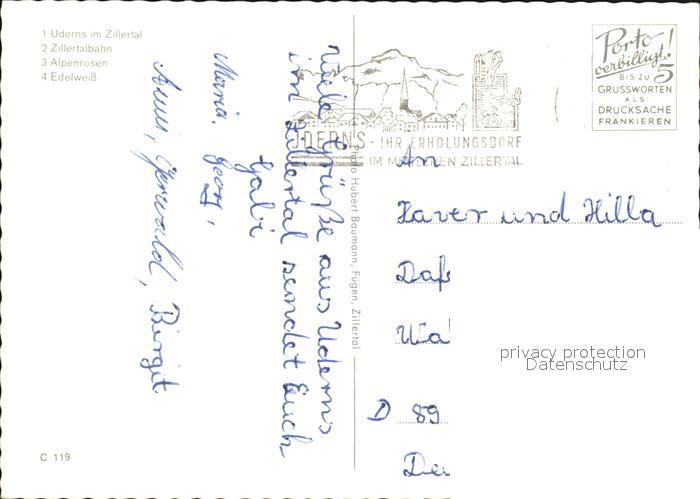 1 Uderns im Zillertal
2 Zillertalbahn
3 Alpenrosen
4 Edelweiß
Viele Grüße aus Uderns
im Zillertal sendet Euch
Gabi
Maria, Georg,
Anni, Gerwald, Birgit
Photo Hubert Baumann, Fügen, Zillertal
UDERNS - IHR ERHOLUNGSDORF
IM ZILLERTAL
Porto
verbilligt!
5
BIS ZU
GRUSSWORTEN
ALS
DRUCKSACHE
FRANKIEREN
An
Xaver und Hilla
Daß
Wal
D 89
privacy protection
Datenschutz
C 119